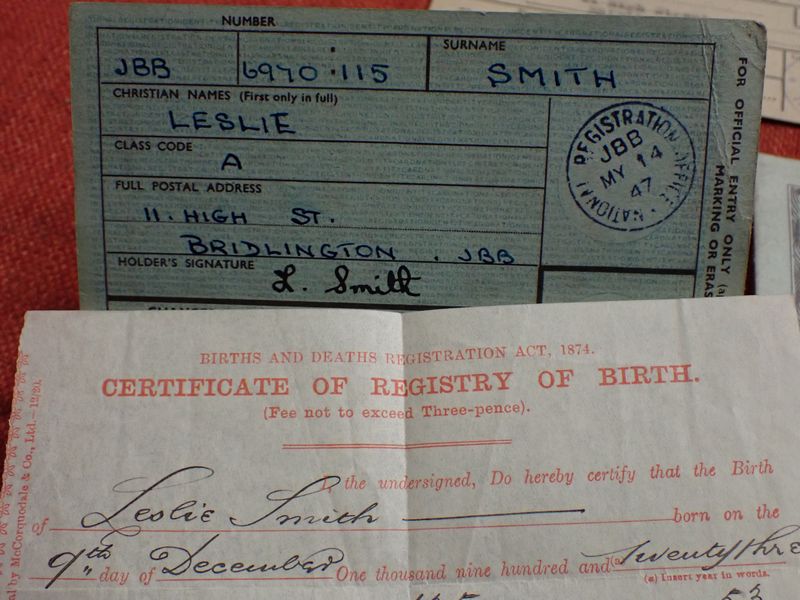 NUMBER
SURNAME
JBB 6970:115 SMITH
CHRISTIAN NAMES (First only in full)
LESLIE
CLASS CODE
A
FULL POSTAL ADDRESS
11. HIGH ST.
BRIDLINGTON. JBB
HOLDER'S SIGNATURE
L. Smith
REGISTRATION OFFICE
JBB
MY 14
47
NATIONAL
FOR OFFICIAL ENTRY ONLY
MARKING OR
BIRTHS AND DEATHS REGISTRATION ACT, 1874.
CERTIFICATE OF REGISTRY OF BIRTH.
(Fee not to exceed Three-pence).
I, the undersigned, Do hereby certify that the Birth
of Leslie Smith born on the
9th day of December One thousand nine hundred and (a) twenty
(a) Insert year in words.
by McCorquodale & Co., Ltd.—12/20.